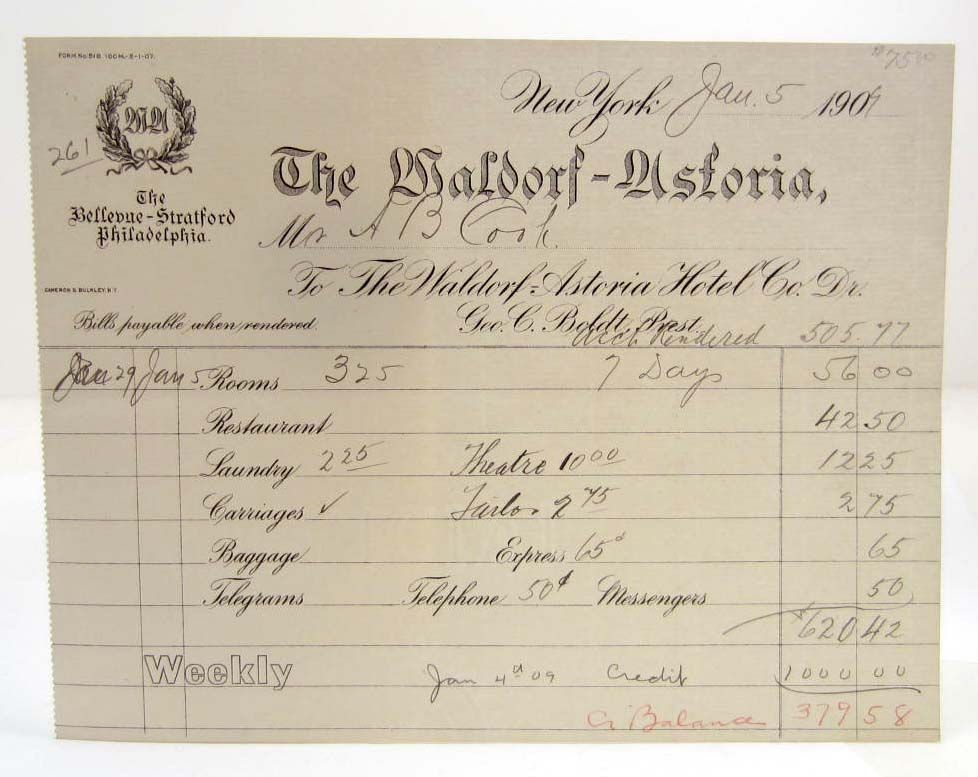 FORM No. 518 100M.-2-1-07.
$7500
New York Jan. 5 1909
WA
261
The Waldorf-Astoria,
The
Bellevue-Stratford
Philadelphia.
Mr A B Cook
CAMERON & BULKLEY, N.Y.
To The Waldorf-Astoria Hotel Co. Dr.
Bills payable when rendered.
Geo. C. Boldt, Prest.
Acct Rendered 505.77
29 Jan 5 Rooms 325 7 Days 56 00
Restaurant 42 50
Laundry 2 25 Theatre 10 00 12 25
Carriages ✓ Tailor 2 75 2 75
Baggage Express 65¢ 65
Telegrams Telephone 50¢ Messengers 50
$620 42
Weekly Jan 4d 09 Credit 1000 00
Cr Balance 379 58